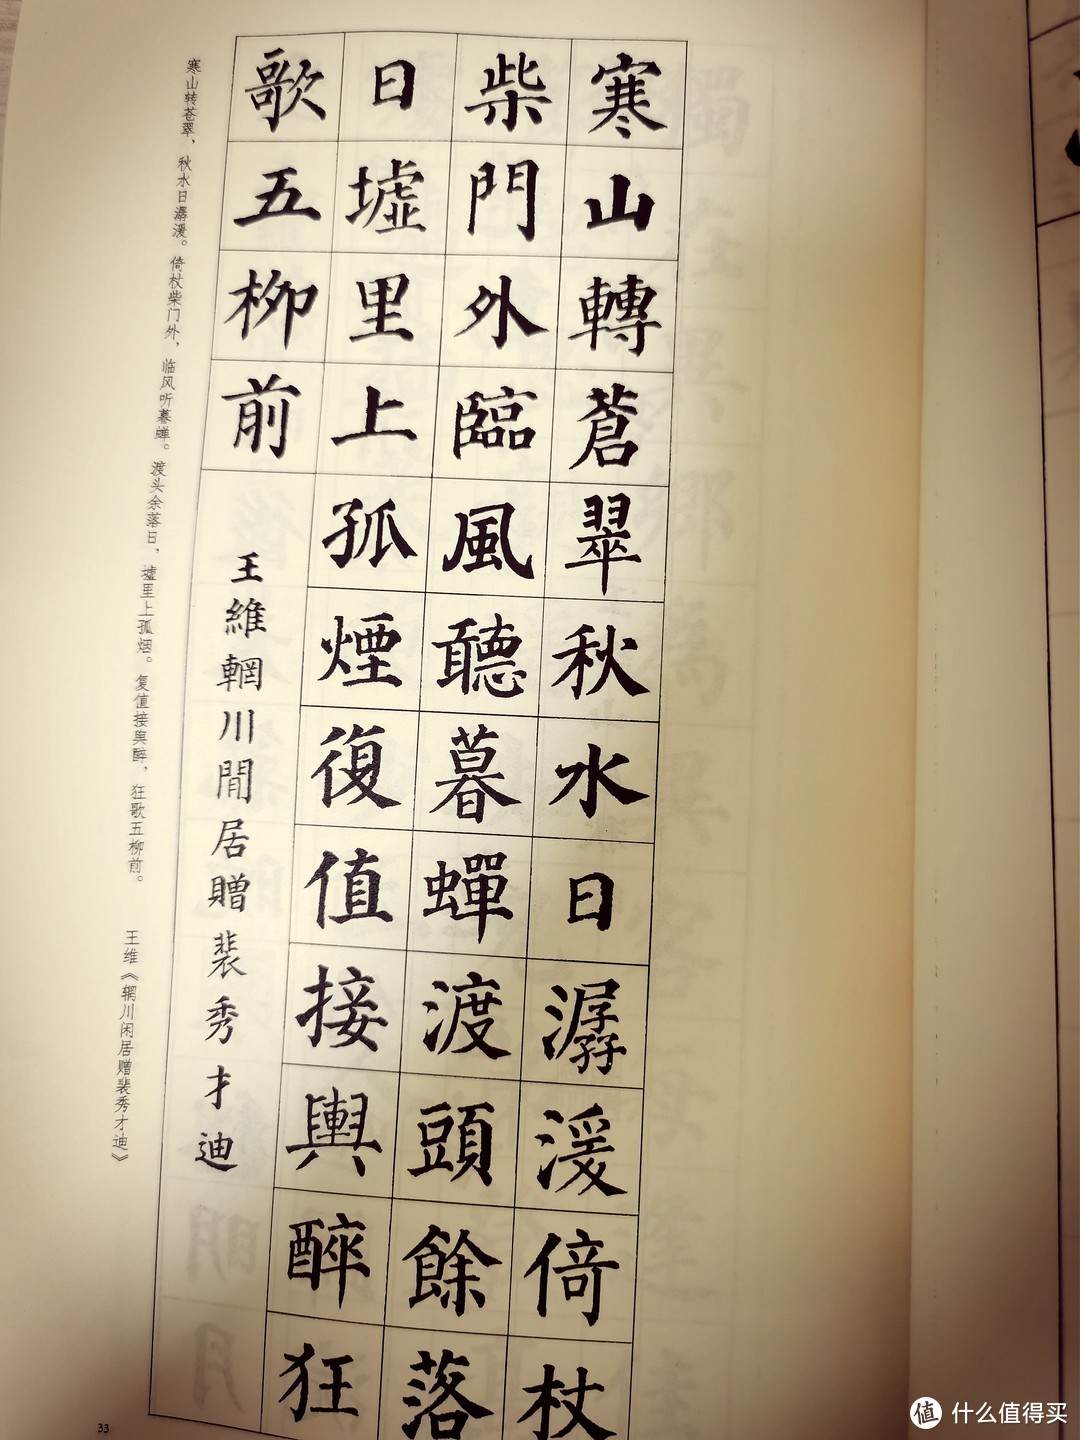 寒山轉蒼翠秋水日潺湲倚杖
柴門外臨風聽暮蟬渡頭餘落
日墟里上孤煙復值接輿醉狂
歌五柳前
王維輞川閒居贈裴秀才迪
寒山转苍翠，秋水日潺湲。倚杖柴门外，临风听暮蝉。渡头余落日，墟里上孤烟。复值接舆醉，狂歌五柳前。 王维《辋川闲居赠裴秀才迪》
33
值 什么值得买